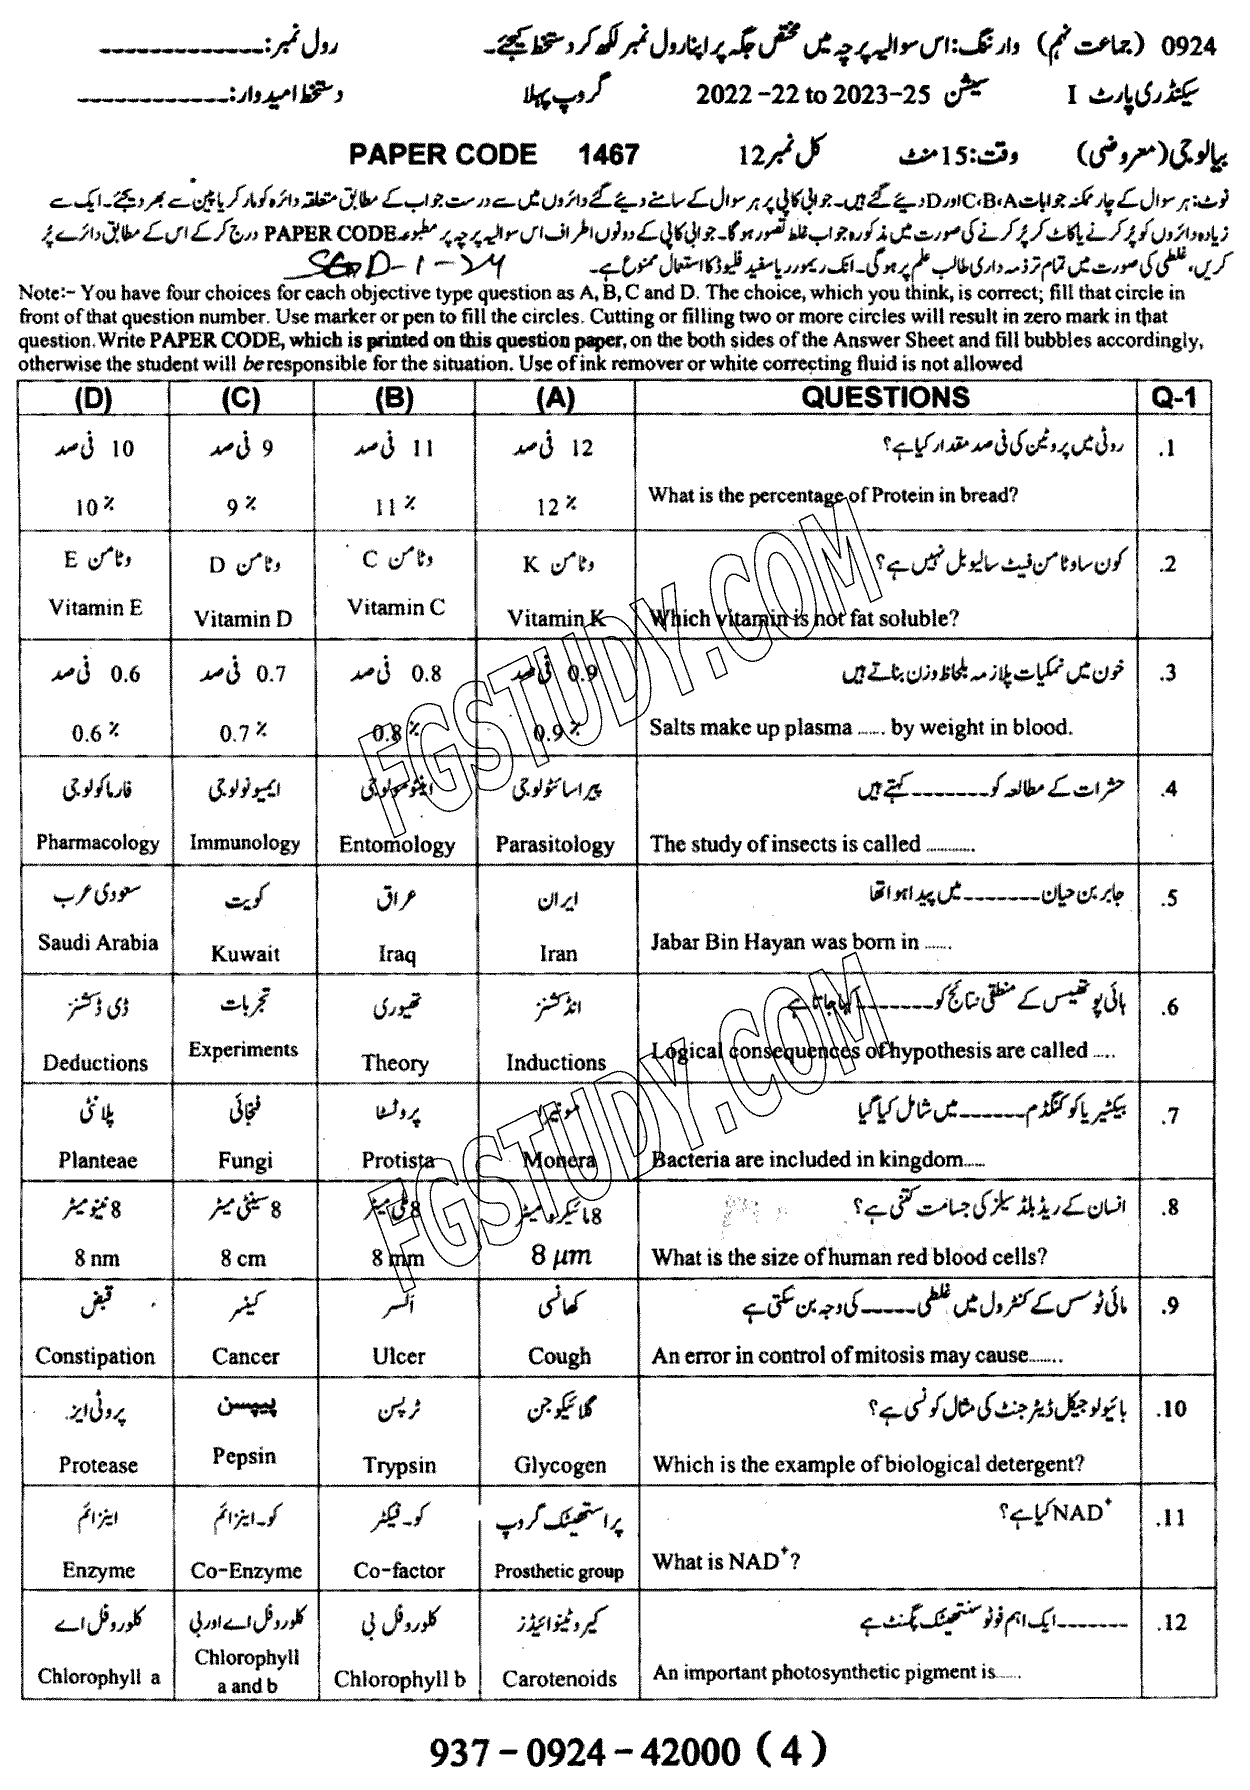 0924 (جماعت نہم) وارننگ: اس سوالیہ پرچہ میں مختص جگہ پر اپنا رول نمبر لکھ کر دستخط کیجئے۔ رول نمبر: -------------
سیکنڈری پارٹ I سیشن 2022 -22 to 2023-25 گروپ پہلا دستخط امیدوار: -------------
بیالوجی (معروضی) وقت: 15 منٹ کل نمبر 12 PAPER CODE 1467
نوٹ: ہر سوال کے چار ممکنہ جوابات C، B، A اور D دیئے گئے ہیں۔ جوابی کاپی پر ہر سوال کے سامنے دیئے گئے دائروں میں سے درست جواب کے مطابق متعلقہ دائرہ کو مارکر یا پین سے بھر دیجئے۔ ایک سے
زیادہ دائروں کو پُر کرنے یا کاٹ کر پُر کرنے کی صورت میں مذکورہ جواب غلط تصور ہوگا۔ جوابی کاپی کے دونوں اطراف اس سوالیہ پرچہ پر مطبوعہ PAPER CODE درج کر کے اس کے مطابق دائرے پُر
کریں، غلطی کی صورت میں تمام تر ذمہ داری طالب علم پر ہوگی۔ انک ریمور ریا سفید فلیوڈ کا استعمال ممنوع ہے۔ SGD-1-24
Note:- You have four choices for each objective type question as A, B, C and D. The choice, which you think, is correct; fill that circle in
front of that question number. Use marker or pen to fill the circles. Cutting or filling two or more circles will result in zero mark in that
question. Write PAPER CODE, which is printed on this question paper, on the both sides of the Answer Sheet and fill bubbles accordingly,
otherwise the student will be responsible for the situation. Use of ink remover or white correcting fluid is not allowed
(D) (C) (B) (A) QUESTIONS Q-1
10 فی صد 9 فی صد 11 فی صد 12 فی صد روٹی میں پروٹین کی فی صد مقدار کیا ہے؟ .1
10% 9% 11% 12% What is the percentage of Protein in bread?
وٹامن E وٹامن D وٹامن C وٹامن K کون سا وٹامن فیٹ سالیوبل نہیں ہے؟ .2
Vitamin E Vitamin D Vitamin C Vitamin K Which vitamin is not fat soluble?
0.6 فی صد 0.7 فی صد 0.8 فی صد 0.9 فی صد خون میں نمکیات پلازمہ بلحاظ وزن بناتے ہیں .3
0.6% 0.7% 0.8% 0.9% Salts make up plasma ...... by weight in blood.
فارماکولوجی ایمیونولوجی اینٹومولوجی پیراسائٹولوجی حشرات کے مطالعہ کو ------- کہتے ہیں .4
Pharmacology Immunology Entomology Parasitology The study of insects is called ...........
سعودی عرب کویت عراق ایران جابر بن حیان ------- میں پیدا ہوا تھا .5
Saudi Arabia Kuwait Iraq Iran Jabar Bin Hayan was born in ......
ڈی ڈکشنز تجربات تھیوری انڈکشنز ہائی پوتھیسس کے منطقی نتائج کو ------- کہا جاتا ہے .6
Deductions Experiments Theory Inductions Logical consequences of hypothesis are called .....
پلانٹی فنجائی پروٹسٹا مونیرا بیکٹیریا کو کنگڈم ------ میں شامل کیا گیا .7
Planteae Fungi Protista Monera Bacteria are included in kingdom.....
8 نینو میٹر 8 سینٹی میٹر 8 ملی میٹر 8 مائیکرو میٹر انسان کے ریڈ بلڈ سیلز کی جسامت کتنی ہے؟ .8
8 nm 8 cm 8 mm 8 µm What is the size of human red blood cells?
قبض کینسر السر کھانسی مائی ٹوسس کے کنٹرول میں غلطی ----- کی وجہ بن سکتی ہے .9
Constipation Cancer Ulcer Cough An error in control of mitosis may cause........
پروٹی ایز پیپسن ٹرپسن گلائیکوجن بائیولوجیکل ڈیٹرجنٹ کی مثال کونسی ہے؟ .10
Protease Pepsin Trypsin Glycogen Which is the example of biological detergent?
اینزائم کو۔اینزائم کو۔فیکٹر پراستھیٹک گروپ NAD⁺ کیا ہے؟ .11
Enzyme Co-Enzyme Co-factor Prosthetic group What is NAD⁺?
کلوروفل اے کلوروفل اے اور بی کلوروفل بی کیروٹینوائیڈز ------- ایک اہم فوٹو سنتھیٹک پگمنٹ ہے .12
Chlorophyll a Chlorophyll a and b Chlorophyll b Carotenoids An important photosynthetic pigment is......
937 - 0924 - 42000 ( 4 )
FGSTUDY.COM
FGSTUDY.COM